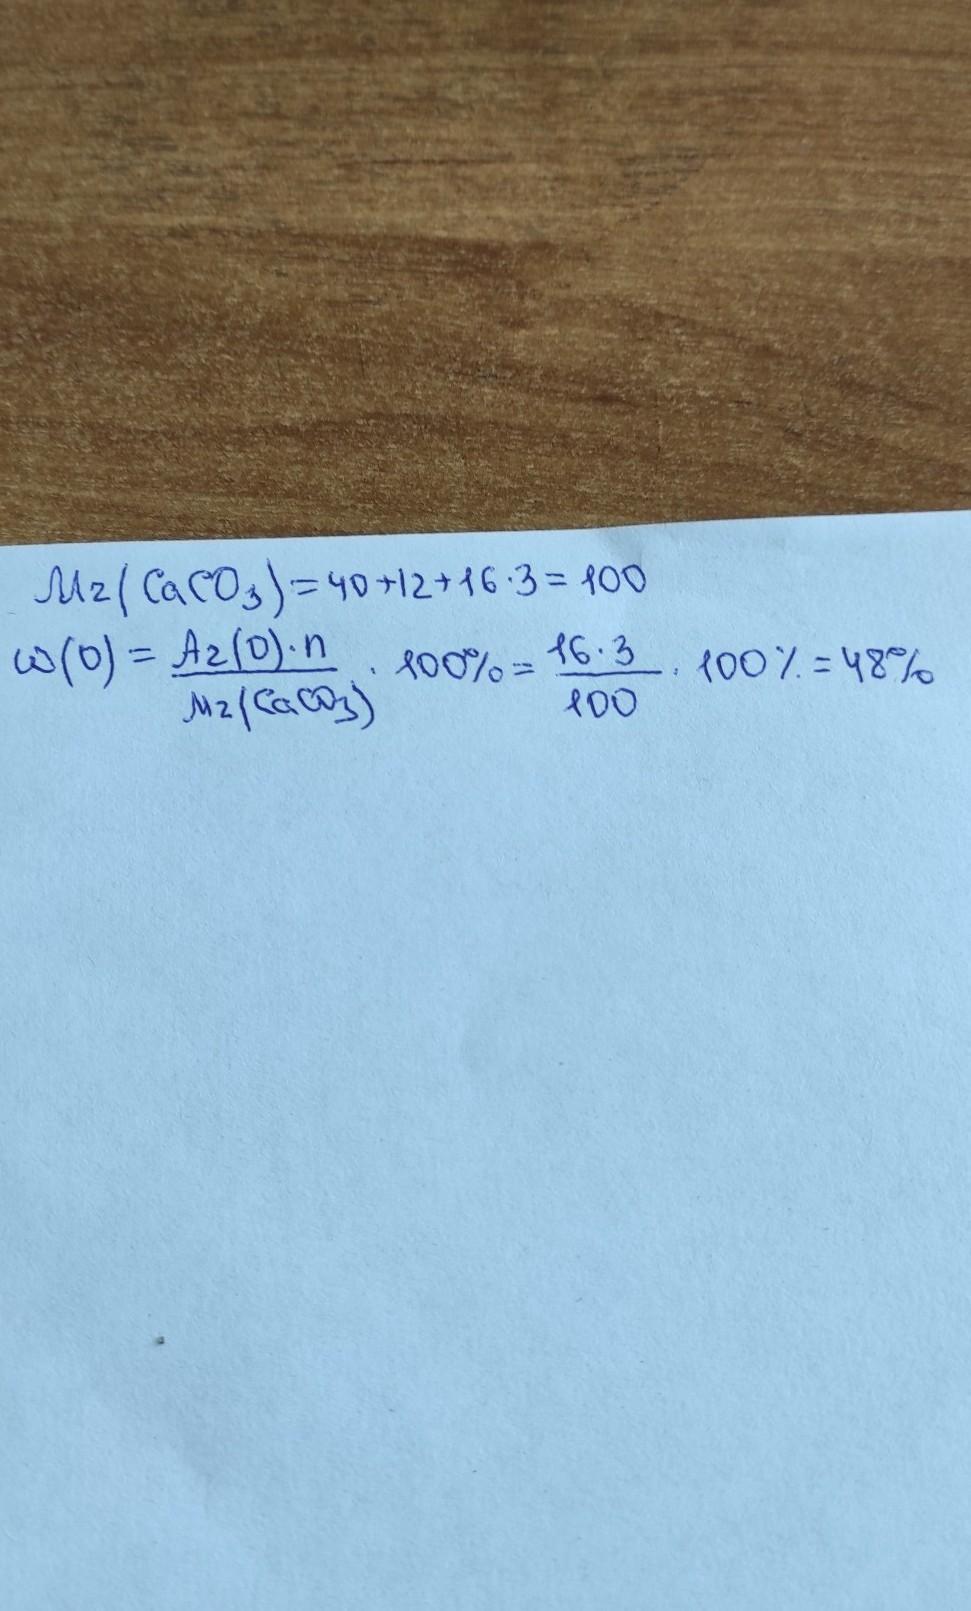 Mr(CaCO₃)=40+12+16·3=100
ω(O) = Ar(O)·n / Mr(CaCO₃) · 100% = 16·3 / 100 · 100% = 48%